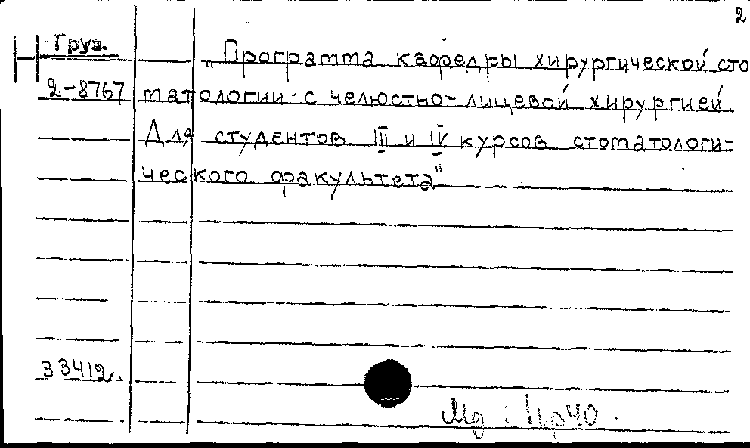 2
Н Груз.
2-8767
„Программа кафедры хирургической сто
матологии с челюстно-лицевой хирургией
Для студентов III и IV курсов стоматологи-
ческого факультета"
33412.